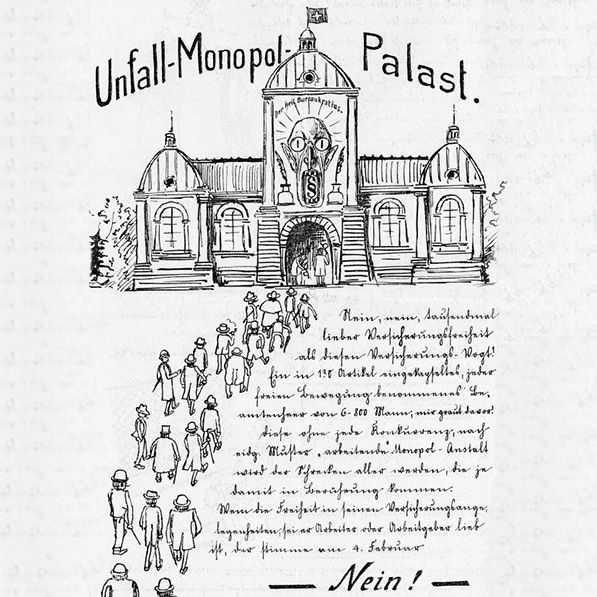 Unfall-Monopol-Palast.
Der heil. Bureaukratius.
§
Nein, nein, tausendmal
lieber Versicherungsfreiheit
als diesen Versicherungs-Vogt!
Ein in 130 Artikel eingekapseltes, jeder
freien Bewegung benommenes Be-
amtenheer von 6-800 Mann, mir graut davor!
diese ohne jede Konkurrenz, nach
eidg. Muster „arbeitende" Monopol-Anstalt
wird der Schrecken aller werden, die je
damit in Berührung kommen.
Wem die Freiheit in seinen Versicherungsange-
legenheiten, sei er Arbeiter oder Arbeitgeber lieb
ist, der stimme am 4. Februar
— Nein! —